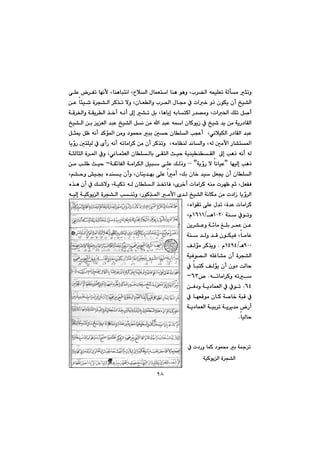 وتثير مسألة تعليمه الحرب، وهو هنا استعمال السلاح، انتباهنا، لأنها تفرض على
الشيخ أن يكون ذو خبرات في مجال الحرب والطعان، ولا تذكر الشجرة شيئاً عن
أصل تلك الخبرات، ومصدر اكتسابه إياها، بل تشير إلى أنه أخذ الطريقة والخرقة
القادرية من يد شيخ في زيوكان اسمه عبد الله من نسل الشيخ عبد العزيز بن الشيخ
عبد القادر الكيلاني، أعجب السلطان حسين ببير محمود ومن المؤكد أنه ظل يمثل
المستشار الأمين له، والساند لنظامه، وتذكر أن من كراماته أنه رأى في ليلتين رؤيا
له أنه ذهب إلى القسطنطينية حيث التقى بالسلطان العثماني، وفي المرة الثالثة
ذهب إليها "عياناً لا رؤية" – وذلك على سبيل الكرامة الفائقة– حيث طلب من
السلطان أن يجعل سيد خان بك، أميراً على بهدينان، وأن يسنده بجيش وحشم،
ففعل، ثم ظهرت منه كرامات أخرى، فاتخذ السلطان له تكية، ولاشك في أن هذه
الرؤيا زادت من مكانة الشيخ لدى الأمير المذكور، وتنسب الشجرة الزيوكية إليه
كرامات عدة، تدل على تقواه،
وتوفي سنة ١٠٢٠هـ/١٦١١م،
عن عمر بلغ مائة وعشرين
عاماً، فيكون قد ولد سنة
٩٠٠هـ/١٤٩٤م . ويذكر مؤلف
الشجرة أن مشاغله الصوفية
حالت دون أن يؤلف كتباً في
سيرته وكراماته. ص٦٣–
٦٤. توفي في العمادية ودفن
في قبة خاصة كان موقعها في
أرض مديرية تربية العمادية
حالياً.
ترجمة بير محمود كما وردت في
الشجرة الزيوكية
٩٨